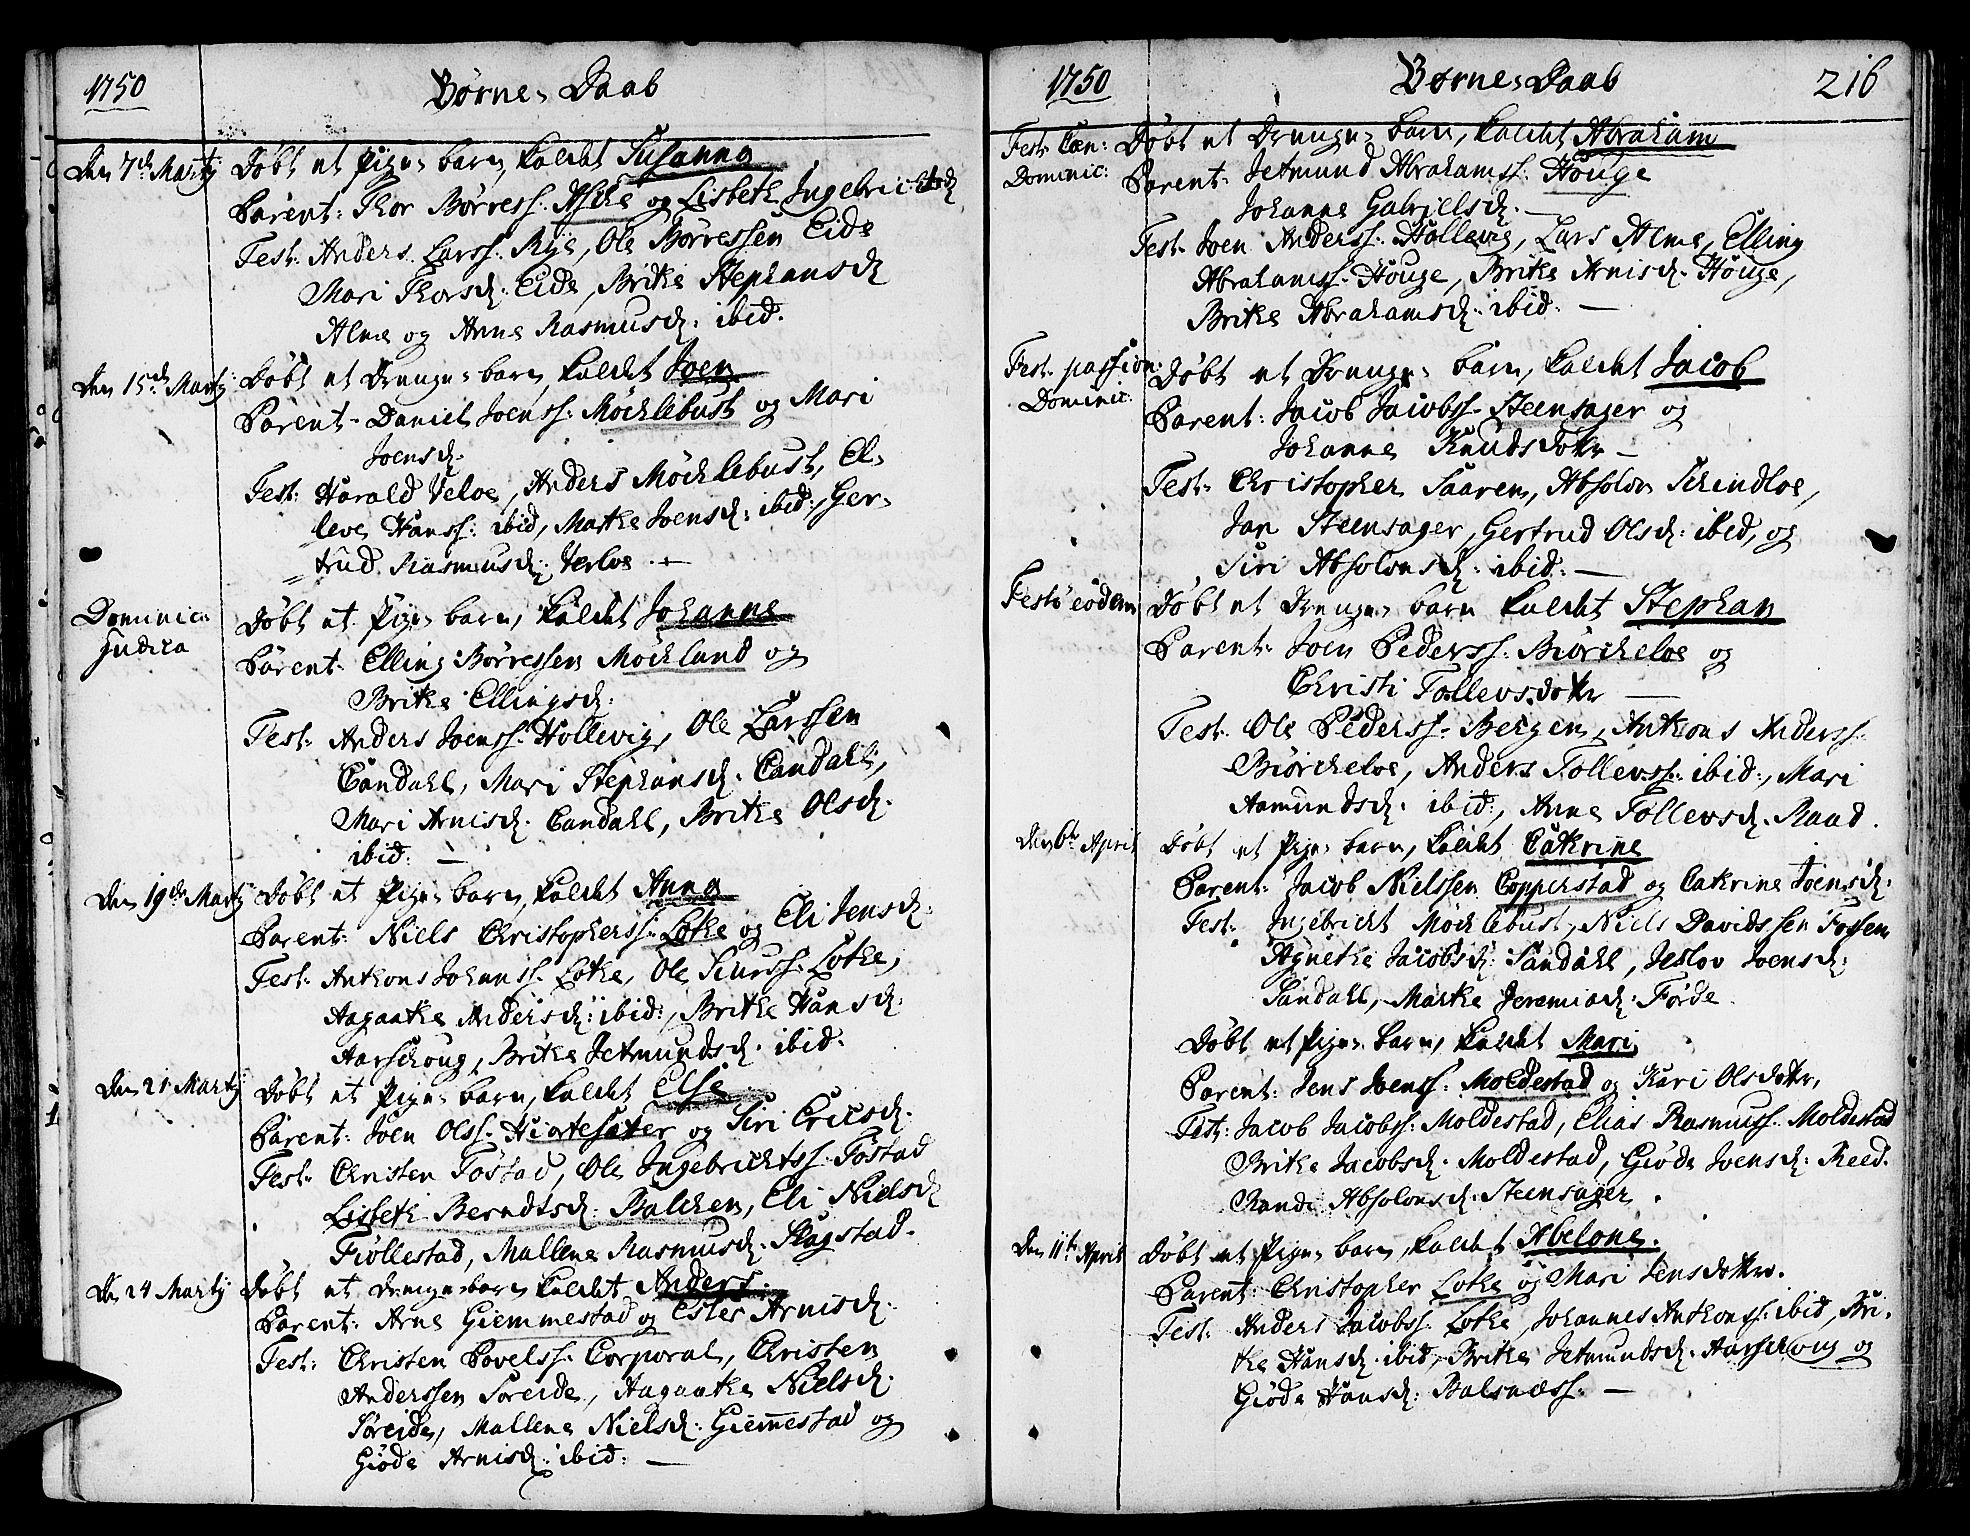 1750
Børne=Daab
Den 7de Martij Døbt et Pige=barn, kaldet Susanna
Parent: Thor Børress: Aske og Lisbeth Ingebrictsd
Test: Anders Larss: Rye, Ole Børressen Eide
Mari Thorsd: Eide, Brithe Stephansd
Alme og Anne Rasmusd: ibid.
Den 15de Martij Døbt et Drenge=barn, kaldet Joen
Parent- Daniel Joenss: Möchlebust og Mari
Joensd.
Test: Harald Veloe, Anders Möchlebust, El=
leve Hanss: ibid, Marthe Joensd: ibid:, Ger=
trud Rasmusd: Verloe.
Dominica Judica
Døbt et Pige=barn, kaldet Johanne
Parent- Elling Børressen Möchland og
Brithe Ellingsd:
Test: Anders Joenss: Hollevig, Ole Larssen
Candahl, Mari Stephansd. Candahl,
Mari Arnisd. Candahl, Brithe Olsd.
ibid. —
Den 19de Martij Døbt et Pige=barn, kaldet Anna
Parent: Niels Christopherss: Lothe og Eli Jensd.
Test: Anthons Johanss: Lothe, Ole Siurss: Lothe,
Aagaathe Andersd: ibid:, Brithe Hansd:
Aarschoug, Brithe Jetmundsd. ibid:
Den 21 Martij Døbt et Pige=barn, kaldet Else
Parent: Joen Olss: Hiortesæter og Siri Ericsd.
Test: Christen Tøstad, Ole Ingebrichtss: Tøstad
Lisbeth Berndtsd: Balchen, Eli Nielsd
Fiøllestad, Mallene Rasmusd. Skagstad.
Den 24 Martij Døbt et Drenge=barn kaldet Anders.
Parent: Arne Giemmestad og Ester Arnisd.
Test: Christen Povelss. Corporal, Christen
Anderssen Søreide, Aagaathe Nielsd.
Søreide, Mallene Nielsd: Giem̅estad og
Giøde Arnisd: ibid: —
1750
Børne=Daab
216
Fest. Cœn: Dominic: Døbt et Drenge=barn, kaldet Abraham
Parent: Jetmund Abrahamss: Houge
Johanne Gabrielsd. —
Test. Joen Anderss: Hollevig, Lars Alme, Elling
Abrahamss. Houge, Brithe Arnisd. Houge,
Brithe Abrahamsd: ibid: —
Fest. passion: Dominic: Døbt et Drenge=barn, kaldet Jacob
Parent: Jacob Jacobss. Steensager og
Johanne Knudsdottr —
Test: Christopher Saaren, Absolon Skindloe,
Jan Steensager, Gertrud Olsd: ibid, og
Siri Absolonsd. ibid: —
Festo eodem Døbt et Drenge=barn kaldet Stephan
Parent: Joen Pederss. Biørcheloe og
Christi Tollevsdottr —
Test. Ole Pederss. Bergem, Anthons Anderss.
Biørcheloe, Anders Tollevss: ibid:, Mari
Aamundsd. ibid:, Anne Tollevsd. Raad.
Den 6te April Døbt et Pige=barn, kaldet Cathrine
Parent: Jacob Nielssen Copperstad og Cathrine Joensd.
Test: Ingebricht Möchlebust, Niels Davidssen Fossem
Agnethe Jacobsd: Sandahl, Jeslov Joensd:
Sandahl, Marthe Jeremiæd: Førde.
Døbt et Pige=barn, kaldet Mari,
Parent: Jens Joenss: Moldestad og Kari Olsdottr,
Test: Jacob Jacobss: Moldestad, Elias Rasmuss: Moldestad
Brithe Jacobsd. Moldestad, Giøde Joensd: Reed.
Randi Absolonsd. Steensager.
Den 11te April Døbt et Pige=barn, kaldet Abelone.
Parent: Christopher Lothe og Mari Jensdottr.
Test: Anders Jacobss. Lothe, Johannes Anthonss: ibid, Bri=
the Hansd. ibid, Brithe Jetmundsd. Aarschoug og
Giøde Hansd: Balsnæss. —